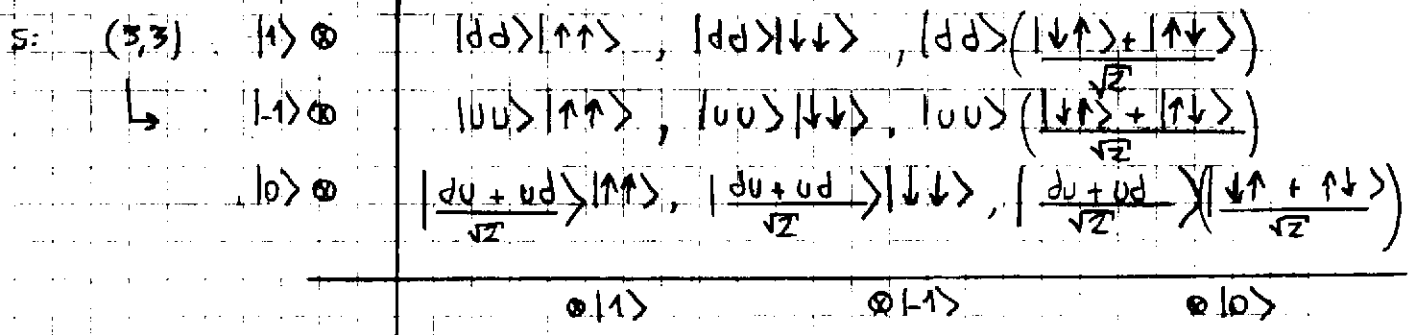 S: (3,3) |1⟩ ⊗ |dd⟩|↑↑⟩ , |dd⟩|↓↓⟩ , |dd⟩(|↓↑⟩+|↑↓⟩/√2)
↳ |-1⟩ ⊗ |uu⟩|↑↑⟩ , |uu⟩|↓↓⟩ , |uu⟩(|↓↑⟩ + |↑↓⟩/√2)
|0⟩ ⊗ |du + ud/√2⟩|↑↑⟩, |du + ud/√2⟩|↓↓⟩, |du + ud/√2⟩(|↓↑ + ↑↓/√2⟩)
⊗|1⟩ ⊗|-1⟩ ⊗|0⟩